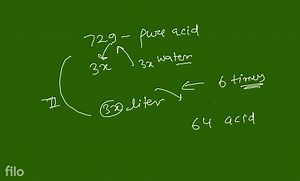 729 - pure acid
3x 3x water
3x liter 6 times
II
64 acid
filo